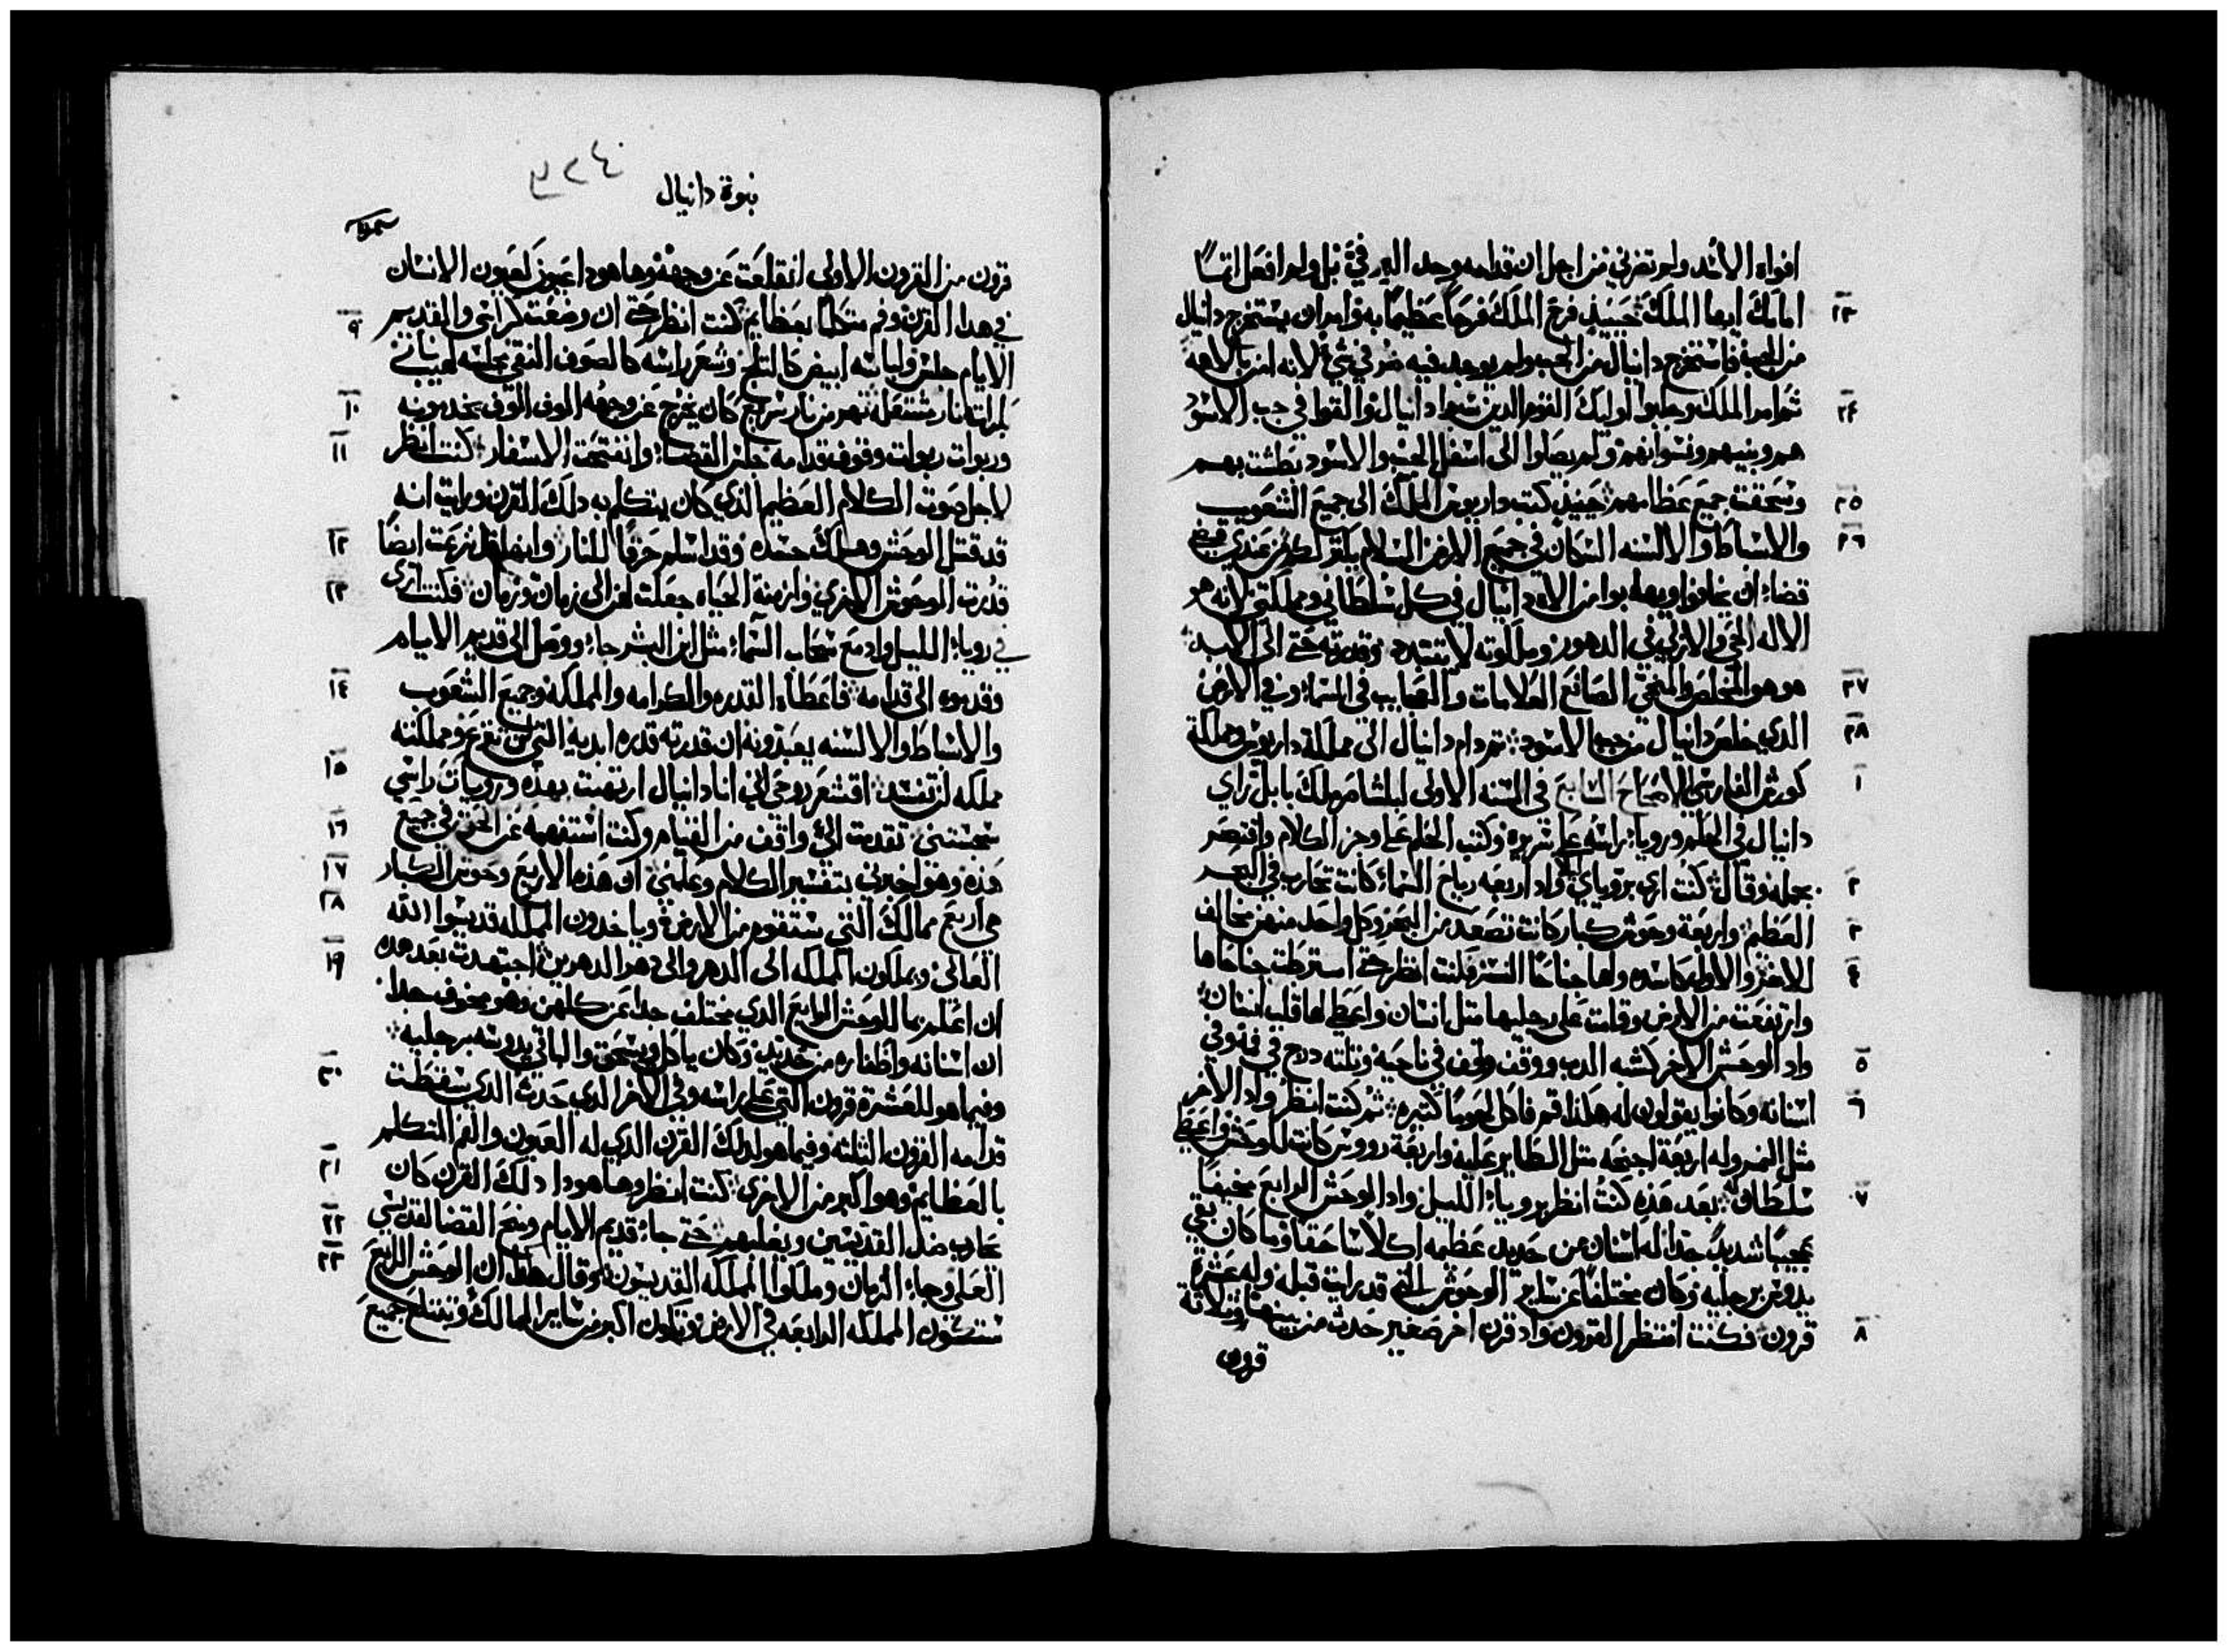 افواه الاسد ولم تضرني من اجل ان قدامه وجد البر فيَّ بل ولم افعل اتمًا
٢٣ امامك ايها الملك حينيذ فرح الملك فرحًا عظيمًا به وامر ان يستخرج دانيال
من الجب فاستخرج دانيال من الجب ولم يوجد فيه ضر في شي لانه امن بالاهه
٢٤ تم امر الملك وجابوا اوليك القوم الدين سعوا دانيال والقوا في جب الاسود
هم وبنيهم ونسوانهم ولم يصلوا الى اسفل الجب والاسود بطشت بهم
٢٥ وسحقت جميع عظامهم حينيذ كتب داريوس الملك الى جميع الشعوب
٢٦ والاسباط والالسنه السكان في جميع الارض السلام يكتر لكم من عندي وضع
قضاء ان يخافوا ويهابوا من الاه دانيال في كل سلطاني ومملكتي لانه هو
الاله الحي والازلي في الدهور وملكوته لا يتبدد وقدرته حتى الى الابد
٢٧ هو هو المخلص والمنجي الصانع العلامات والعجايب في السماء وفي الارض
٢٨ الدي خلص دانيال من جب الاسود تم دام دانيال الى مملكة داريوس ومملكة
١ كورش الفارسي الاصحاح السابع في السنه الاولى لبلشاصر ملك بابل راي
دانيال في الحلم ورويا راسه على سريره وكتب الحلم على وجز الكلام واقتصر
٢ بجمله وقال كنت ارى برويايَ ليلًا واد اربعه رياح السماء كانت تحارب في البحر
٣ العظيم واربعة وحوش كبار كانت تصعد من البحر وكل واحد منهن مخالف
٤ للاخر والاوله كاسده ولها جناحا النسر فكنت انظر حتى استرطت جناحاها
وارتفعت من الارض وقامت على رجليها متل انسان واعطي لها قلب انسان
٥ واد الوحش الاخر كشبه الدب ووقف في ناحية وتلته درج في فمه وفي
٦ اسنانه وكانوا يقولون له هكذا قم فاكل لحومًا كتيره تم كنت انظر واد الاخر
متل النمر وله اربعة اجنحه متل الطاير عليه واربعة رووس كانت للوحش واعطي
٧ سلطان له بعد هذه كنت انظر برويا الليل واد الوحش الرابع مخيفًا
عجيبًا شديدً جدًا له اسنان من حديد عظيمه اكلًا ساحقًا وما كان بقي
يدوس برجليه وكان مختلفًا عن ساير الوحوش التي قد رايت قبله وله عشرة
٨ قرون فكنت انتظر القرون واد قرن اخر صغير حدث من بينها وتلاتة
قرون
نبوة دانيال
قرون من القرون الاولى انقلعت عن وجهه وها هودا عيون كعيون الانسان
٩ في هدا القرن وفم متكلمًا بعظايم كنت انظر حتى ان وضعت كراسي والقديم
الايام جلس ولباسه ابيض كالتلج وشعر راسه كالصوف النقي جلسه لهيب نار
١٠ بكراتها نار مشتعله نهر من نار سريع كان يخرج عن وجهه الوف الوف يخدمونه
١١ وربوات ربوات وقوف قدامه جلس القضاء وانفتحت الاسفار كنت انظر
لاجل صوت الكلام العظيم الدي كان يتكلم به دلك القرن ورايت انه
١٢ قد قتل الوحش وهلك جسده وقد اسلم حرقًا للنار وايضًا قد نزعت ايضًا
١٣ قدرت الوحوش الاخري وازمنة الحياه جعلت لهن الى زمان وزمان فكنت ارى
في رويا الليل واد مع سحاب السماء متل ابن البشر جاء ووصل الى قديم الايام
١٤ وقدموه الى قدامه فاعطاه القدره والكرامه والمملكه وجميع الشعوب
والاسباط والالسنه يعبدونه ان قدرته قدره ابديه التي لن تنزع ومملكته
١٥ مملكه لن تفسد اقشعر روحي انا دانيال ارتهبت بهذه ورويات راسي
١٦ سجستني تقدمت الى واقف من القيام وكنت استفهمه عن الحق في جميع
١٧ هذه وهو اخبرني بتفسير الكلام وعلمني ان هذه الاربع وحوش الكبار
١٨ هي اربع ممالك التي ستقوم من الارض وياخدون المملكه قديسوا الله
١٩ العالي ويملكون المملكه الى الدهر والى دهر الدهرين اجتهدت بعد هده
ان اعلم بما للوحش الرابع الدي مختلف جدا عن كلهن وهو مخوف جدا
ان اسنانه واظفاره من حديد وكان ياكل ويسحق والباقي يدوسه برجليه
٢٠ وفيما هو للعشرة قرون التي على راسه وفي الاخر الدي حدث الدي سقطت
قدامه القرون التلته وفيما هو لدلك القرن الدي له العيون والفم المتكلم
٢١ بالعظايم وهو اكبر من الاخرى كنت انظر وها هودا دلك القرن كان
٢٢ يحارب ضد القديسين ويغلبهم حتى جاء قديم الايام ومنح القضا لقديسي
٢٣ العلي وجاء الزمان وملكوا المملكه القديسون وقال هكذا ان الوحش الرابع
ستكون المملكه الرابعه في الارض وتكون اكبر من ساير الممالك وتبتلع جميع